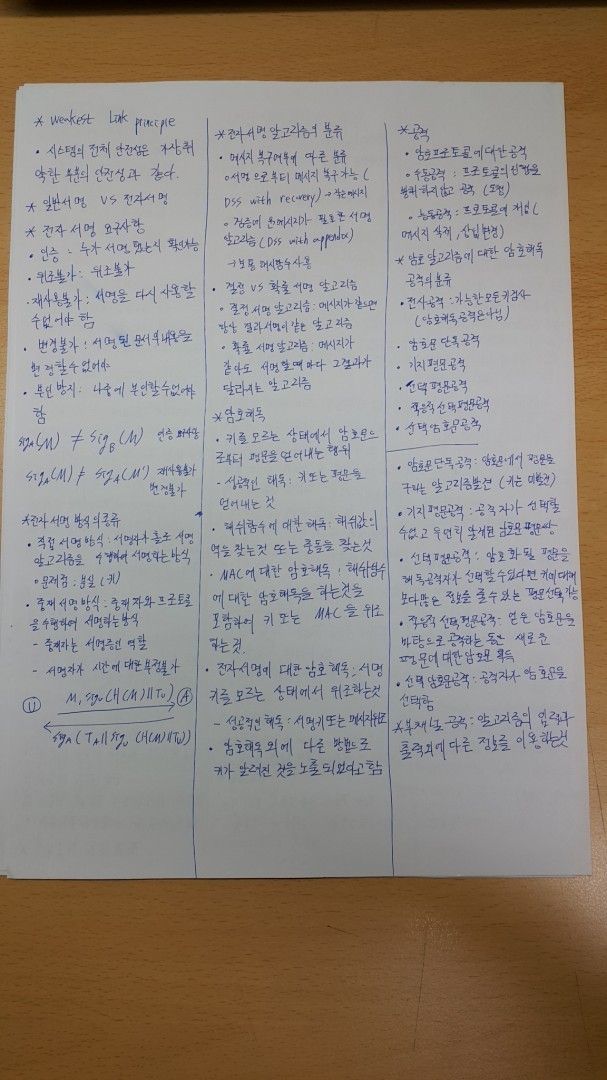 * weakest link principle
• 시스템의 전체 안전성은 가장 취
약한 부분의 안전성과 같다.
* 일반서명 VS 전자서명
* 전자 서명 요구사항
• 인증 : 누가 서명 했는지 확인가능
• 위조불가 : 위조불가
• 재사용불가 : 서명을 다시 사용할
수 없어야 함
• 변경불가 : 서명된 문서의 내용을
변경할 수 없어야
• 부인 방지 : 나중에 부인할 수 없어야
함
SigA(M) ≠ SigB(M) 인증
SigA(M) ≠ SigA(M') 재사용불가
변경불가
* 전자 서명 방식의 종류
• 직접 서명 방식 : 서명자가 홀로 서명
알고리즘을 수행하여 서명하는 방식
◦ 문제점 : 분실 (키)
• 중재 서명 방식 : 중재자와 프로토콜
을 수행하여 서명하는 방식
- 중재자는 서명 증인 역할
- 서명자가 시간에 대한 부정불가
U M, SigU(H(M)||TU) A
SigA(TA||SigU(H(M)||TU))
* 전자 서명 알고리즘의 분류
• 메시지 복구여부에 따른 분류
◦ 서명으로부터 메시지 복구 가능 (
DSS with recovery) → 작은 메시지
◦ 검증에 원 메시지가 필요한 서명
알고리즘 (DSS with appendix)
→ 보통 해시함수 사용
• 결정 VS 확률 서명 알고리즘
◦ 결정 서명 알고리즘 : 메시지가 같으면
항상 결과 서명이 같은 알고리즘
◦ 확률 서명 알고리즘 : 메시지가
같아도 서명할 때마다 그 결과가
달라지는 알고리즘
* 암호해독
• 키를 모르는 상태에서 암호문으
로부터 평문을 얻어내는 행위
- 성공적인 해독 : 키 또는 평문을
얻어내는 것
• 해쉬함수에 대한 해독 : 해쉬값의
역을 찾는 것 또는 충돌을 찾는 것
• MAC에 대한 암호해독 : 해쉬함수
에 대한 암호해독을 하는 것을
포함하여 키 또는 MAC 을 위조
하는 것.
• 전자서명에 대한 암호해독 : 서명
키를 모르는 상태에서 위조하는 것
- 성공적인 해독 : 서명키 또는 메시지 위조
• 암호해독 외에 다른 방법으로
키가 알려진 것을 노출 되었다고 함
* 공격
• 암호 프로토콜에 대한 공격
◦ 수동공격 : 프로토콜의 진행을
방해하지 않고 공격 (도청)
◦ 능동공격 : 프로토콜에 개입 (
메시지 삭제, 삽입, 변경)
* 암호 알고리즘에 대한 암호해독
공격의 분류
• 전사공격 : 가능한 모든 키 검사
(암호해독 공격은 아님)
• 암호문 단독 공격
• 기지 평문공격
• 선택 평문공격
• 적응적 선택 평문공격
• 선택 암호문공격
• 암호문 단독공격 : 암호문에서 평문을
구하는 알고리즘 발견 (키는 미발견)
• 기지 평문공격 : 공격자가 선택할
수 없고 우연히 알게된 암호문 평문쌍
• 선택 평문공격 : 암호화될 평문을
해독공격자가 선택할 수 있다면 키에 대해
보다 많은 정보를 줄 수 있는 평문 선택 가능
• 적응적 선택 평문공격 : 얻은 암호문을
바탕으로 공격하는 동안 새로운
평문에 대한 암호문 획득
• 선택 암호문공격 : 공격자가 암호문을
선택함
* 부채널 공격 : 알고리즘의 입력과
출력외에 다른 정보를 이용하는 것